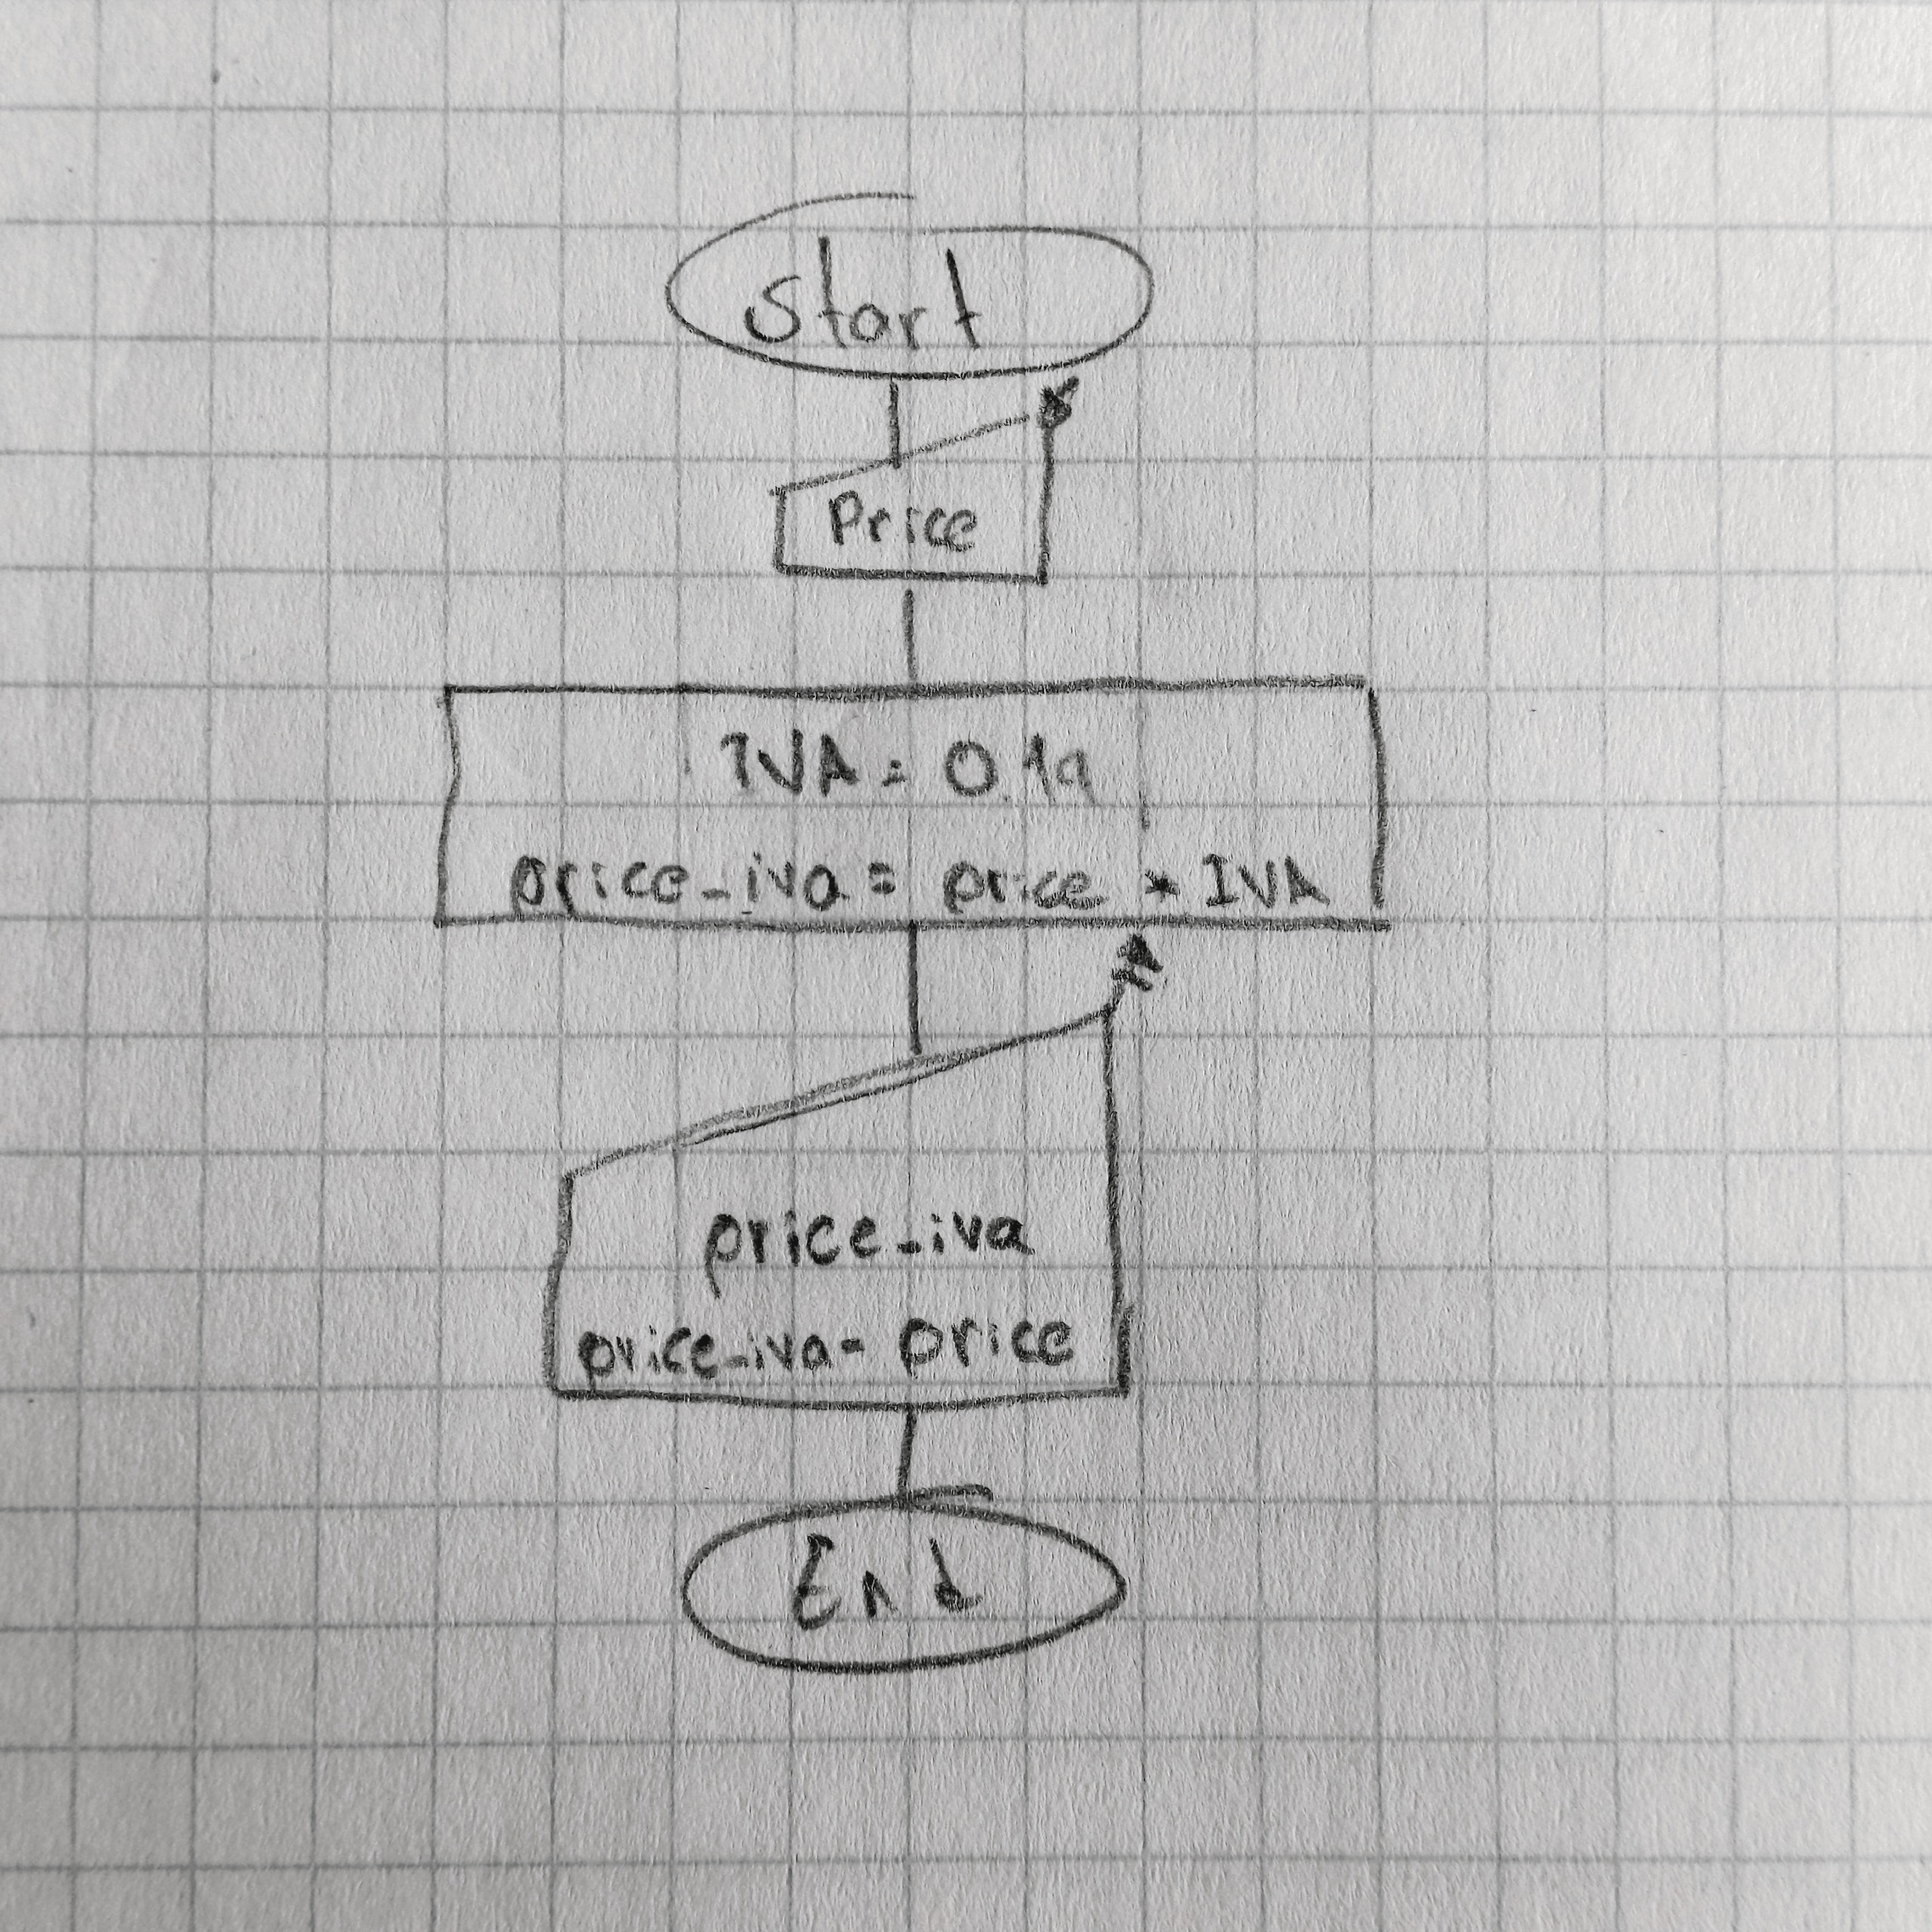 Start
Price
IVA = 0.19
price_iva = price * IVA
price_iva
price_iva - price
End